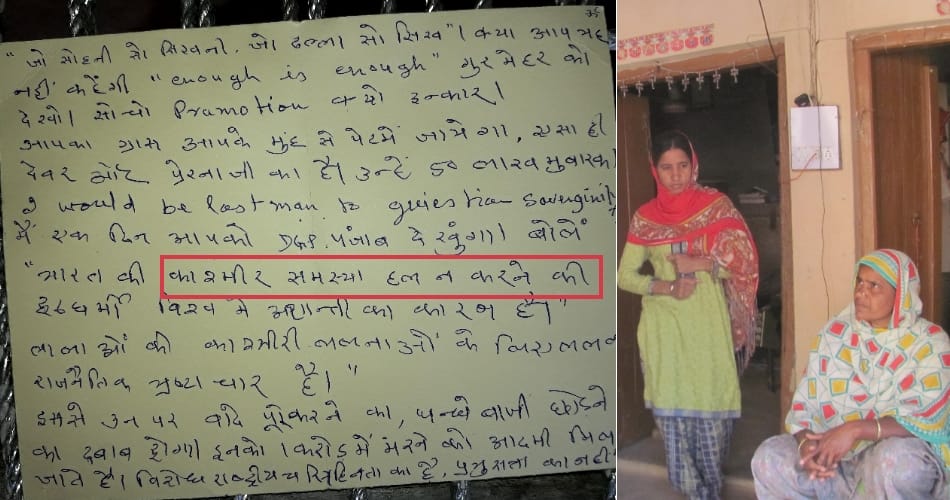 "जो सोहनी सो सिखनी, जो ढल्ला सो सिख"। क्या आप यह
नहीं कहेंगी "enough is enough" गुरमेहर को
देखो। सोचो Promotion क्यों इन्कार।
आपका ग्रास आपके मुंह से पेट में जायेगा, ऐसा ही
देवर और प्रेरनाजी का है। उन्हें 50 लाख मुबारक।
I would be last man to question
मैं एक दिन आपको DGP. पंजाब देखूंगा। बोलें
"भारत की काश्मीर समस्या हल न करने की
विश्व में अशान्ती का कारण है।"
को काश्मीरी ललनाओं के
राजनैतिक भ्रष्टाचार है।"
इससे उन पर वादे पूरे करने का, छोडने
का दबाव होगा। इनको 1 करोड में मरने को आदमी मिल
जाते है। विरोध राष्ट्रीय का है,